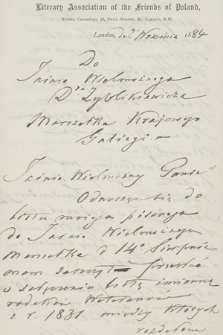 Literary Association of the Friends of Poland,
London, 2 Września 1884
Do
Jaśnie Wielmożnego
Dra Zyblikiewicza
Marszałka Krajowego
Galicyi
Jaśnie Wielmożny Panie
Odnosząc się do
listu mojego pisanego
do Jaśnie Wielmożnego
Marszałka d 14 Sierpnia
mam zaszczyt przesłać
w załączeniu listę imienną
rodaków Weteranów
z r. 1831 między których